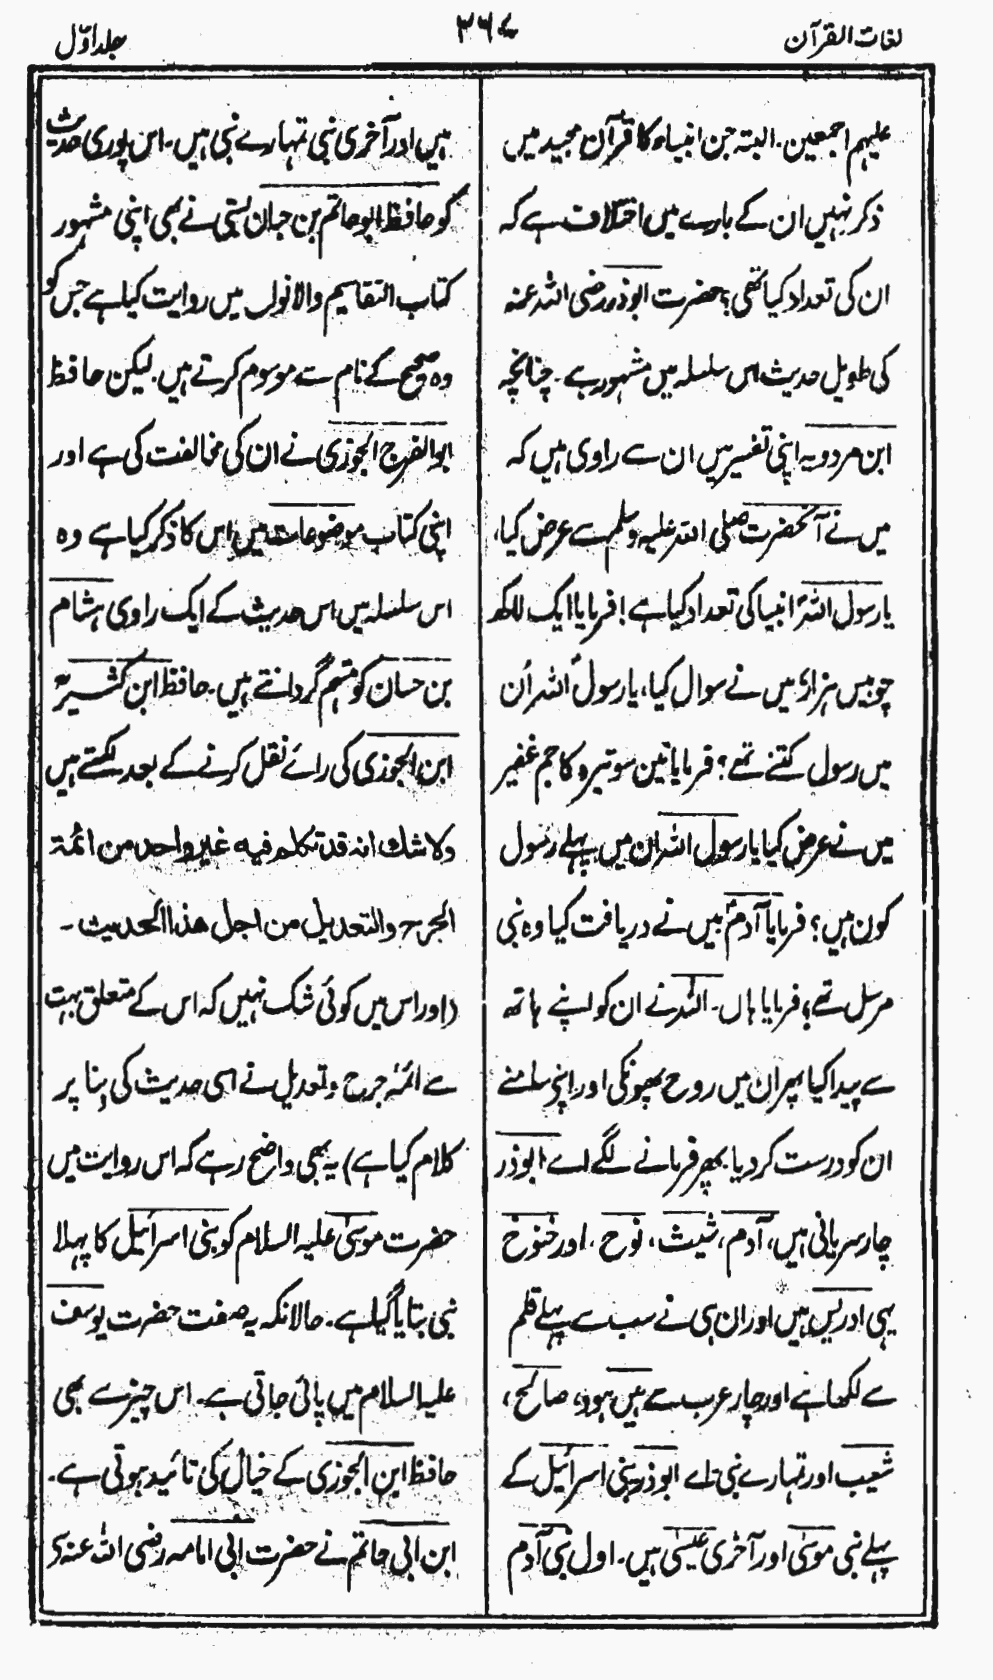 لغات القرآن
۳۶۷
جلد اوّل
علیہم اجمعین۔ البتہ جن انبیاء کا قرآن مجید میں
ذکر نہیں ان کے بارے میں اختلاف ہے کہ
ان کی تعداد کیا تھی؟ حضرت ابوذر رضی اللہ عنہ
کی طویل حدیث اس سلسلہ میں مشہور ہے۔ چنانچہ
ابن مردویہ اپنی تفسیر میں ان سے راوی ہیں کہ
میں نے آنحضرت صلی اللہ علیہ وسلم سے عرض کیا،
یا رسول اللہ انبیا کی تعداد کیا ہے! فرمایا ایک لاکھ
چوبیس ہزار، میں نے سوال کیا، یا رسول اللہ اُن
میں رسول کتنے تھے؟ فرمایا تین سو تیرہ کا جم غفیر
میں نے عرض کیا یا رسول اللہ ان میں پہلے رسول
کون ہیں؟ فرمایا آدم میں نے دریافت کیا وہ نبی
مرسل تھے؛ فرمایا ہاں۔ اللہ نے ان کو اپنے ہاتھ
سے پیدا کیا پھر ان میں روح پھونکی اور اپنے سامنے
ان کو درست کر دیا۔ پھر فرمانے لگے اے ابوذر
چار سریانی ہیں، آدم، شیث، نوح، اور خنوخ
یہی ادریس ہیں اور ان ہی نے سب سے پہلے قلم
سے لکھا ہے اور چار عرب سے ہیں ہود، صالح،
شعیب اور تمہارے نبی۔ اے ابوذر بنی اسرائیل کے
پہلے نبی موسٰی اور آخری عیسٰی ہیں۔ اول نبی آدم
ہیں اور آخری نبی تمہارے نبی ہیں۔ اس پوری حدیث
کو حافظ ابو حاتم بن حبان بستی نے بھی اپنی مشہور
کتاب التقاسیم والانواع میں روایت کیا ہے جس کو
وہ صحیح کے نام سے موسوم کرتے ہیں۔ لیکن حافظ
ابوالفرج الجوزی نے ان کی مخالفت کی ہے اور
اپنی کتاب موضوعات میں اس کا ذکر کیا ہے وہ
اس سلسلہ میں اس حدیث کے ایک راوی ہشام
بن حسان کو متہم گردانتے ہیں۔ حافظ ابن کثیر
ابن الجوزی کی رائے نقل کرنے کے بعد لکھتے ہیں
ولا شك انه قد تكلم فيه غير واحد من ائمة
الجرح والتعديل من اجل هذا الحديث ۔
(اور اس میں کوئی شک نہیں کہ اس کے متعلق بہت
سے ائمہ جرح و تعدیل نے اسی حدیث کی بنا پر
کلام کیا ہے) یہ بھی واضح رہے کہ اس روایت میں
حضرت موسٰی علیہ السلام کو بنی اسرائیل کا پہلا
نبی بتایا گیا ہے۔ حالانکہ یہ صفت حضرت یوسف
علیہ السلام میں پائی جاتی ہے۔ اس چیز سے بھی
حافظ ابن الجوزی کے خیال کی تائید ہوتی ہے۔
ابن ابی حاتم نے حضرت ابی امامہ رضی اللہ عنہ کی